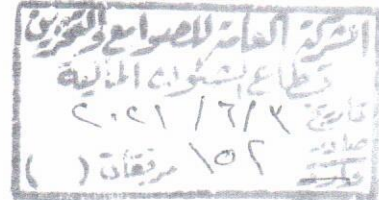 الشركة العامة للصوامع والتخزين
قطاع الشئون المالية
تاريخ ٢٠٢١ / ٦ / ٣
صادر ١٥٢ مرفقات ( )
وارد